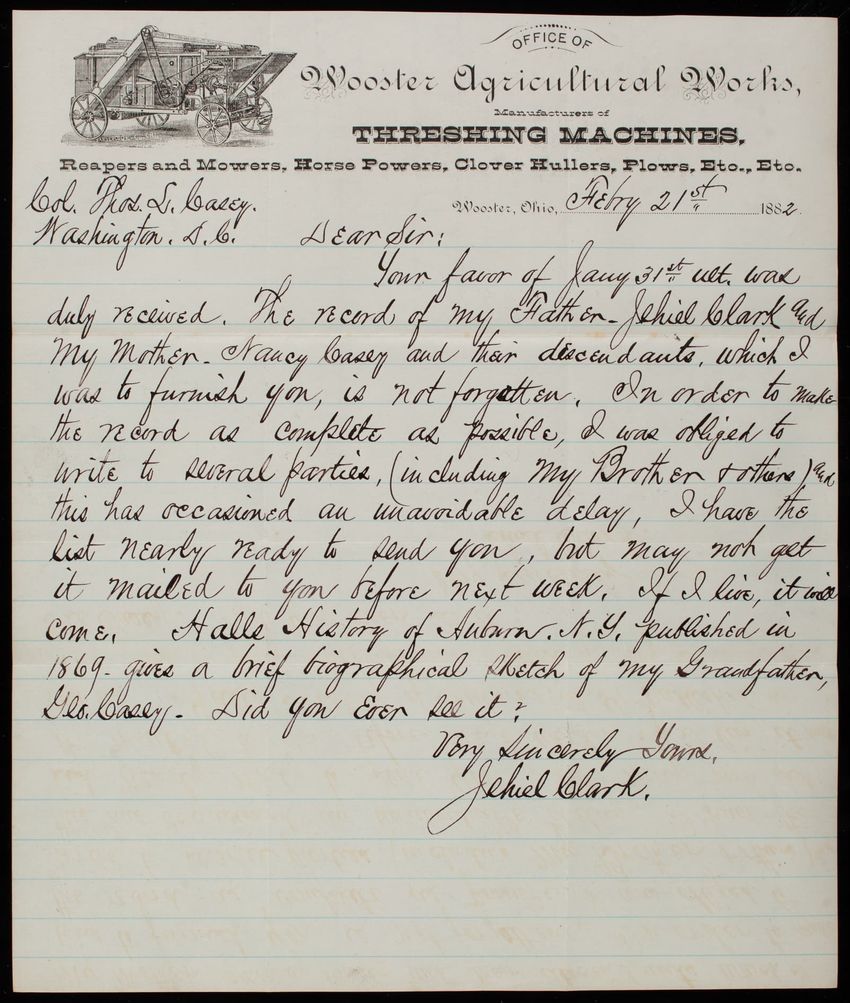 OFFICE OF
Wooster Agricultural Works,
Manufacturers of
THRESHING MACHINES,
Reapers and Mowers, Horse Powers, Clover Hullers, Plows, Etc., Etc.
Col. Thos. L. Casey.
Wooster, Ohio, Febry 21st 1882.
Washington. D.C. Dear Sir:
Your favor of Jany 31st ult. was
duly received. The record of my Father - Jehiel Clark and
My Mother - Nancy Casey and their descendants, which I
was to furnish you, is not forgotten. In order to make
the record as complete as possible, I was obliged to
write to several parties, (including My Brother & others) and
this has occasioned an unavoidable delay, I have the
list nearly ready to send you, but may not get
it mailed to you before next week. If I live, it will
come. Halls History of Auburn. N.Y. published in
1869 - gives a brief biographical sketch of my Grandfather,
Geo. Casey - Did you Ever see it?
Very Sincerely Yours,
Jehiel Clark.